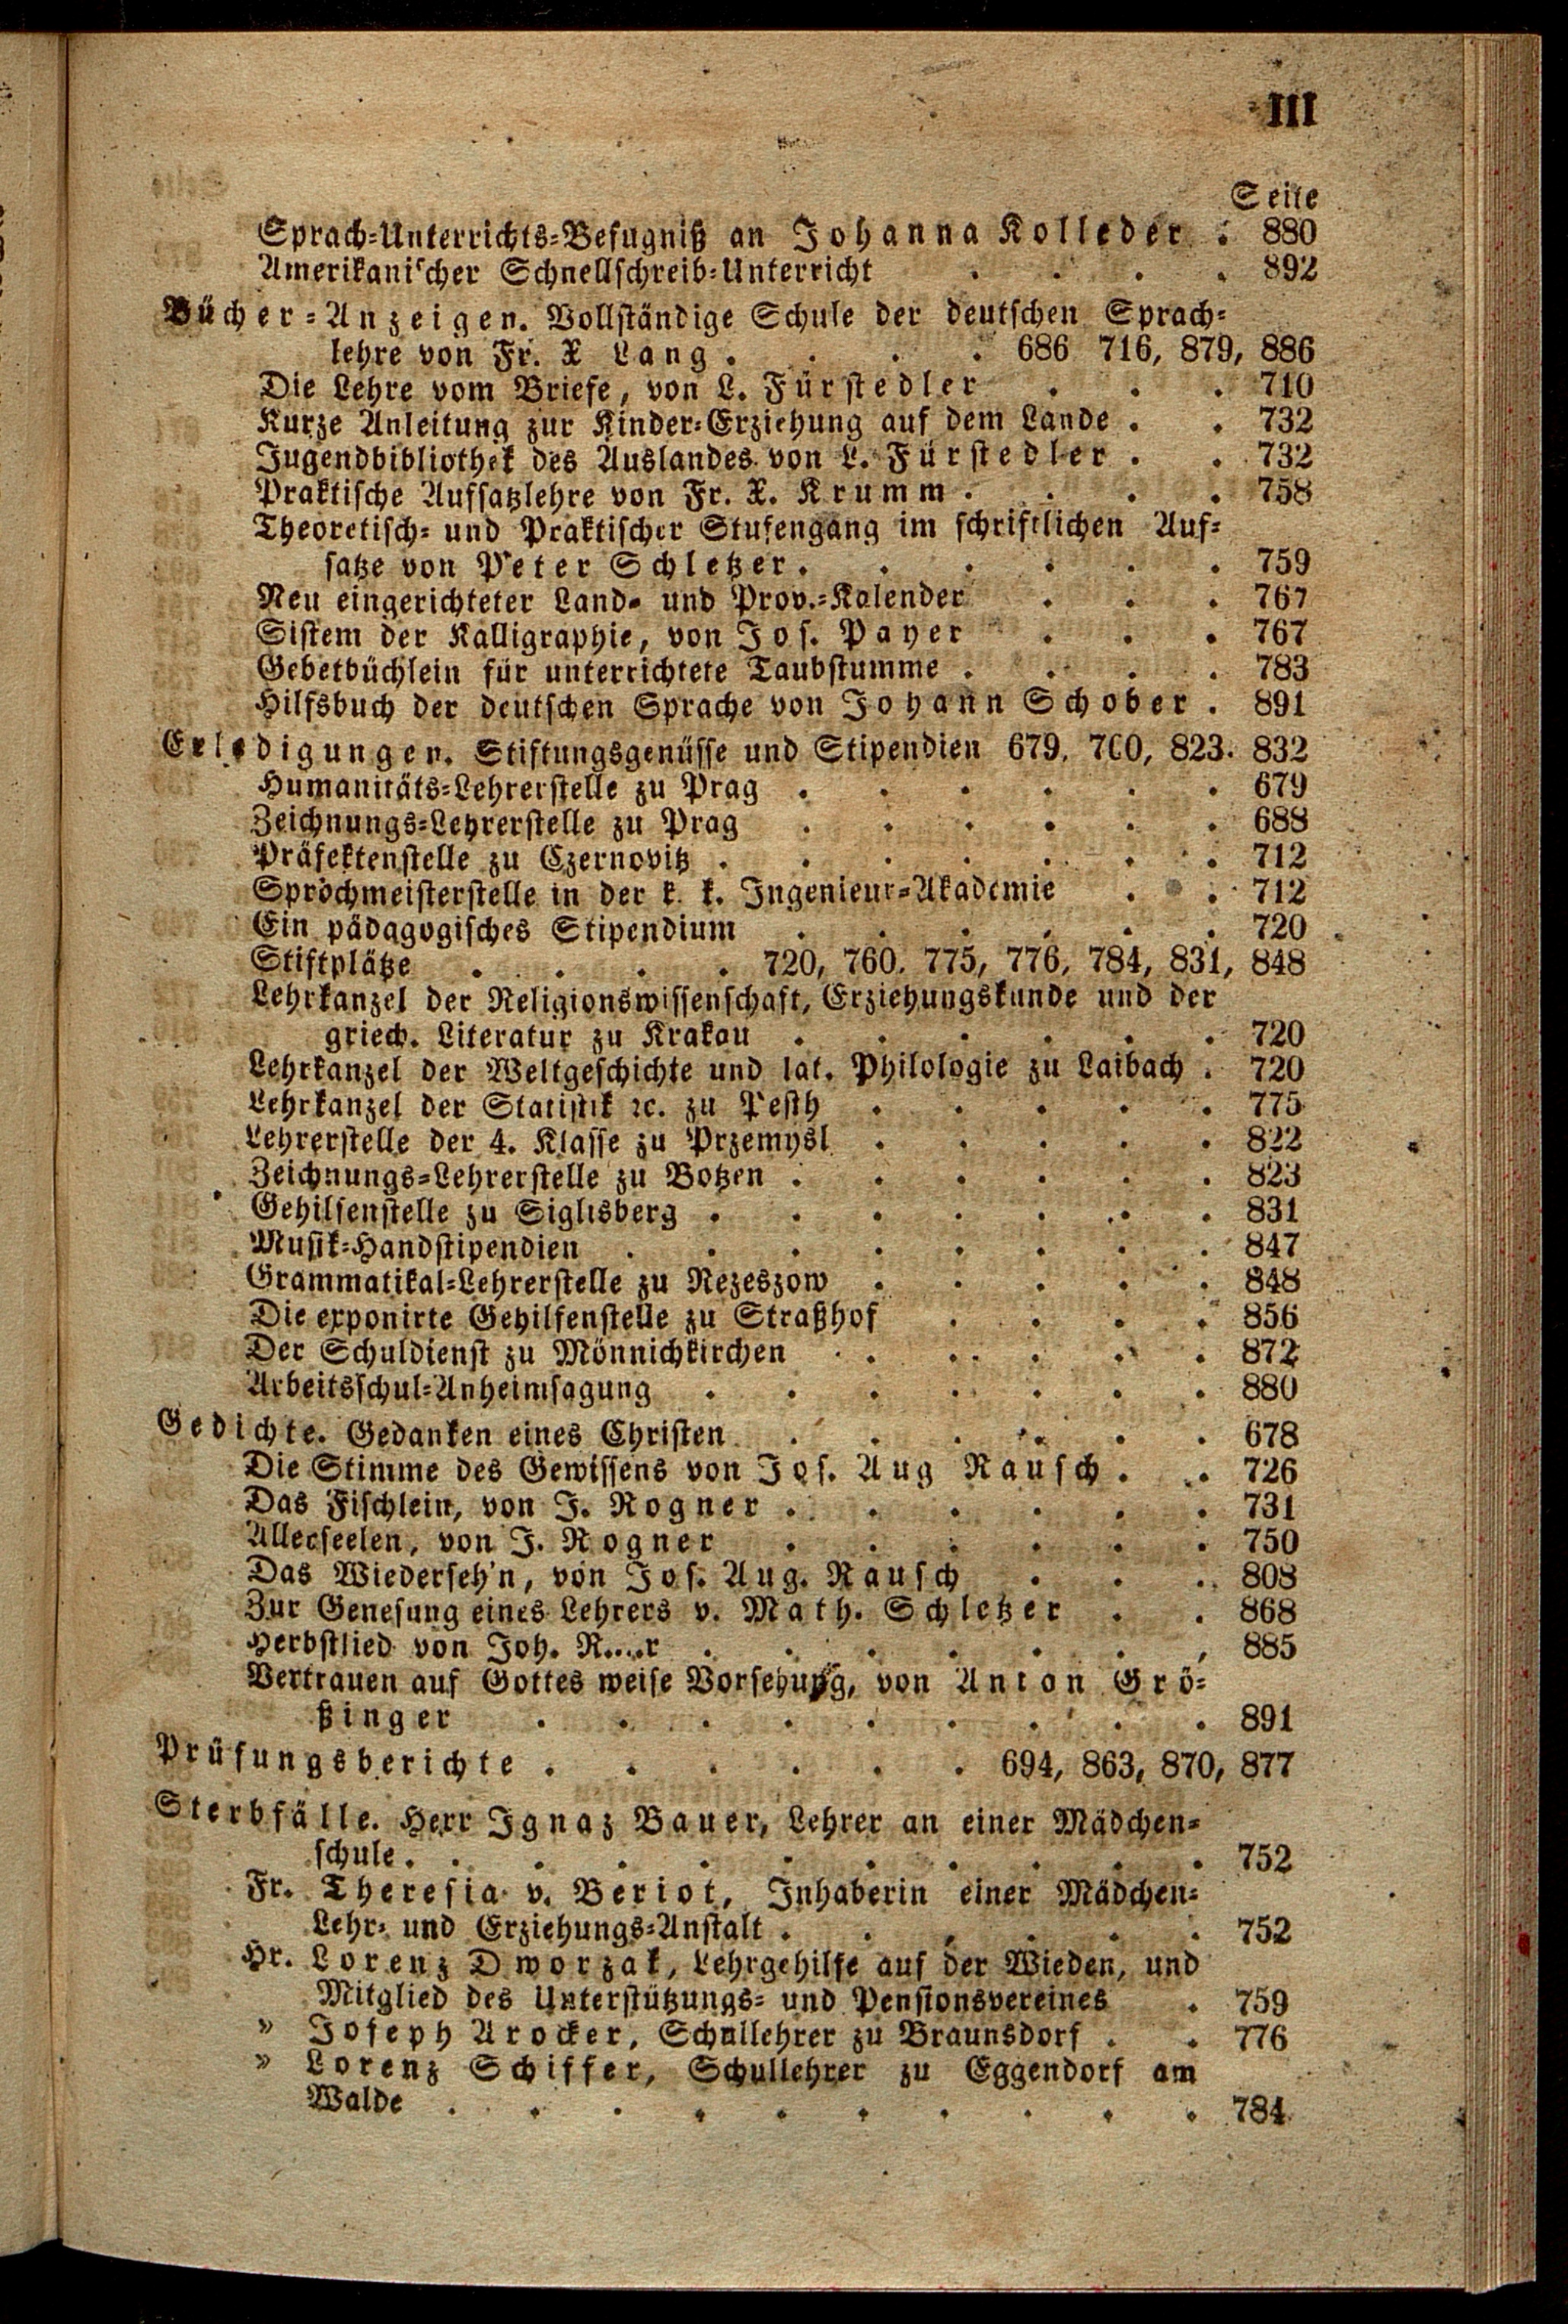 III
Seite
Sprach-Unterrichts-Befugniß an Johanna Kolleder . 880
Amerikanischer Schnellschreib-Unterricht . . . . 892
Bücher-Anzeigen. Vollständige Schule der deutschen Sprach-
lehre von Fr. X Lang . . . . 686 716, 879, 886
Die Lehre vom Briefe, von L. Fürstedler . . . 710
Kurze Anleitung zur Kinder-Erziehung auf dem Lande . . 732
Jugendbibliothek des Auslandes von L. Fürstedler . . 732
Praktische Aufsatzlehre von Fr. X. Krumm . . . . 758
Theoretisch- und Praktischer Stufengang im schriftlichen Auf-
satze von Peter Schletzer . . . . . . 759
Neu eingerichteter Land- und Prov.-Kalender . . . 767
Sistem der Kalligraphie, von Jos. Payer . . . 767
Gebetbüchlein für unterrichtete Taubstumme . . . . 783
Hilfsbuch der deutschen Sprache von Johann Schober . 891
Erledigungen. Stiftungsgenüsse und Stipendien 679, 760, 823. 832
Humanitäts-Lehrerstelle zu Prag . . . . . . 679
Zeichnungs-Lehrerstelle zu Prag . . . . . . 688
Präfektenstelle zu Czernovitz . . . . . . . 712
Sprachmeisterstelle in der k. k. Ingenieur-Akademie . . 712
Ein pädagogisches Stipendium . . . . . . 720
Stiftplätze . . . . 720, 760. 775, 776, 784, 831, 848
Lehrkanzel der Religionswissenschaft, Erziehungskunde und der
griech. Literatur zu Krakau . . . . . . 720
Lehrkanzel der Weltgeschichte und lat. Philologie zu Laibach . 720
Lehrkanzel der Statistik ꝛc. zu Pesth . . . . . 775
Lehrerstelle der 4. Klasse zu Przemysl . . . . . 822
Zeichnungs-Lehrerstelle zu Botzen . . . . . . 823
Gehilfenstelle zu Siglisberg . . . . . . . 831
Musik-Handstipendien . . . . . . . . 847
Grammatikal-Lehrerstelle zu Rezeszow . . . . . 848
Die exponirte Gehilfenstelle zu Straßhof . . . . 856
Der Schuldienst zu Mönnichkirchen . . . . . 872
Arbeitsschul-Anheimsagung . . . . . . . 880
Gedichte. Gedanken eines Christen . . . . . . 678
Die Stimme des Gewissens von Jos. Aug Rausch . . 726
Das Fischlein, von J. Rogner . . . . . . 731
Allerseelen, von J. Rogner . . . . . . 750
Das Wiederseh'n, von Jos. Aug. Rausch . . . 808
Zur Genesung eines Lehrers v. Math. Schletzer . . 868
Herbstlied von Joh. R....r . . . . . . , 885
Vertrauen auf Gottes weise Vorsehung, von Anton Grö-
ßinger . . . . . . . . . 891
Prüfungsberichte . . . . . . 694, 863, 870, 877
Sterbfälle. Herr Ignaz Bauer, Lehrer an einer Mädchen-
schule . . . . . . . . . . . 752
Fr. Theresia v. Beriot, Inhaberin einer Mädchen-
Lehr- und Erziehungs-Anstalt . . . . . . 752
Hr. Lorenz Dworzak, Lehrgehilfe auf der Wieden, und
Mitglied des Unterstützungs- und Pensionsvereines . 759
» Joseph Arocker, Schullehrer zu Braunsdorf . . 776
» Lorenz Schiffer, Schullehrer zu Eggendorf am
Walde . . . . . . . . . . 784